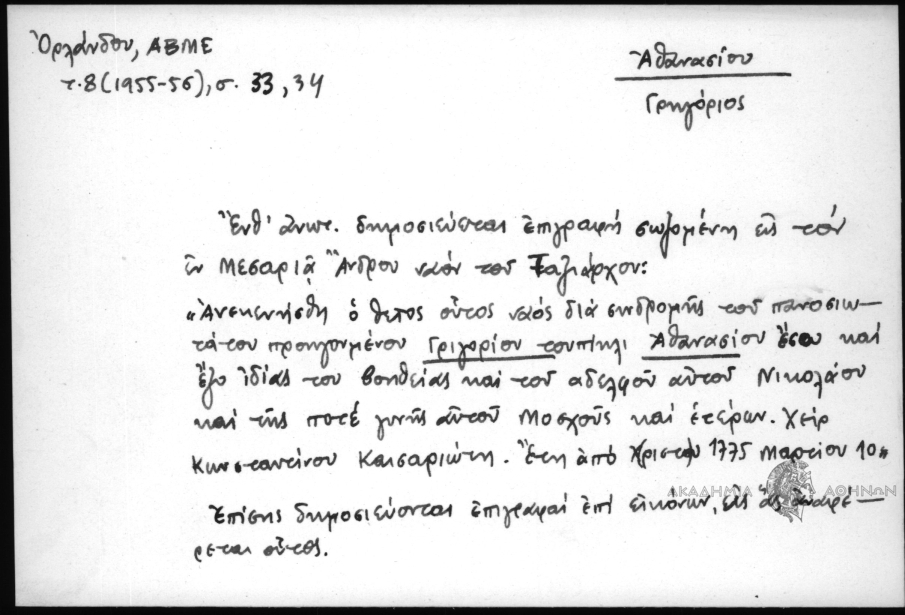 Ὀρλάνδου, ΑΒΜΕ
τ.8 (1955-56), σ. 33, 34
Ἀθανασίου
Γρηγόριος
Ἔνθ' ἄνωτ. δημοσιεύεται ἐπιγραφή σωζομένη εἰς τόν
ἐν Μεσαριᾷ Ἄνδρου ναόν τοῦ Ταξιάρχου:
«Ἀνεκενήσθη ὁ θεῖος οὗτος ναός διά συνδρομῆς τοῦ πανοσιω-
τάτου προηγουμένου Γριγορίου τουπίκλι Ἀθανασίου ἔσω καί
ἔξο ἰδίας του βοηθείας καί τοῦ αδελφοῦ αὐτοῦ Νικολάου
καί τῆς ποτέ γυνῆς αὐτοῦ Μοσχοῦς καί ἑτέρων. Χείρ
Κωνσταντίνου Καισαριώτη. Ἔτη ἀπό Χριστοῦ 1775 Μαρτίου 10»
ΑΚΑΔΗΜΙΑ ΑΘΗΝΩΝ
Ἐπίσης δημοσιεύονται ἐπιγραφαί ἐπί εἰκόνων, εἰς ἅς ἀναφέ-
ρεται οὗτος.